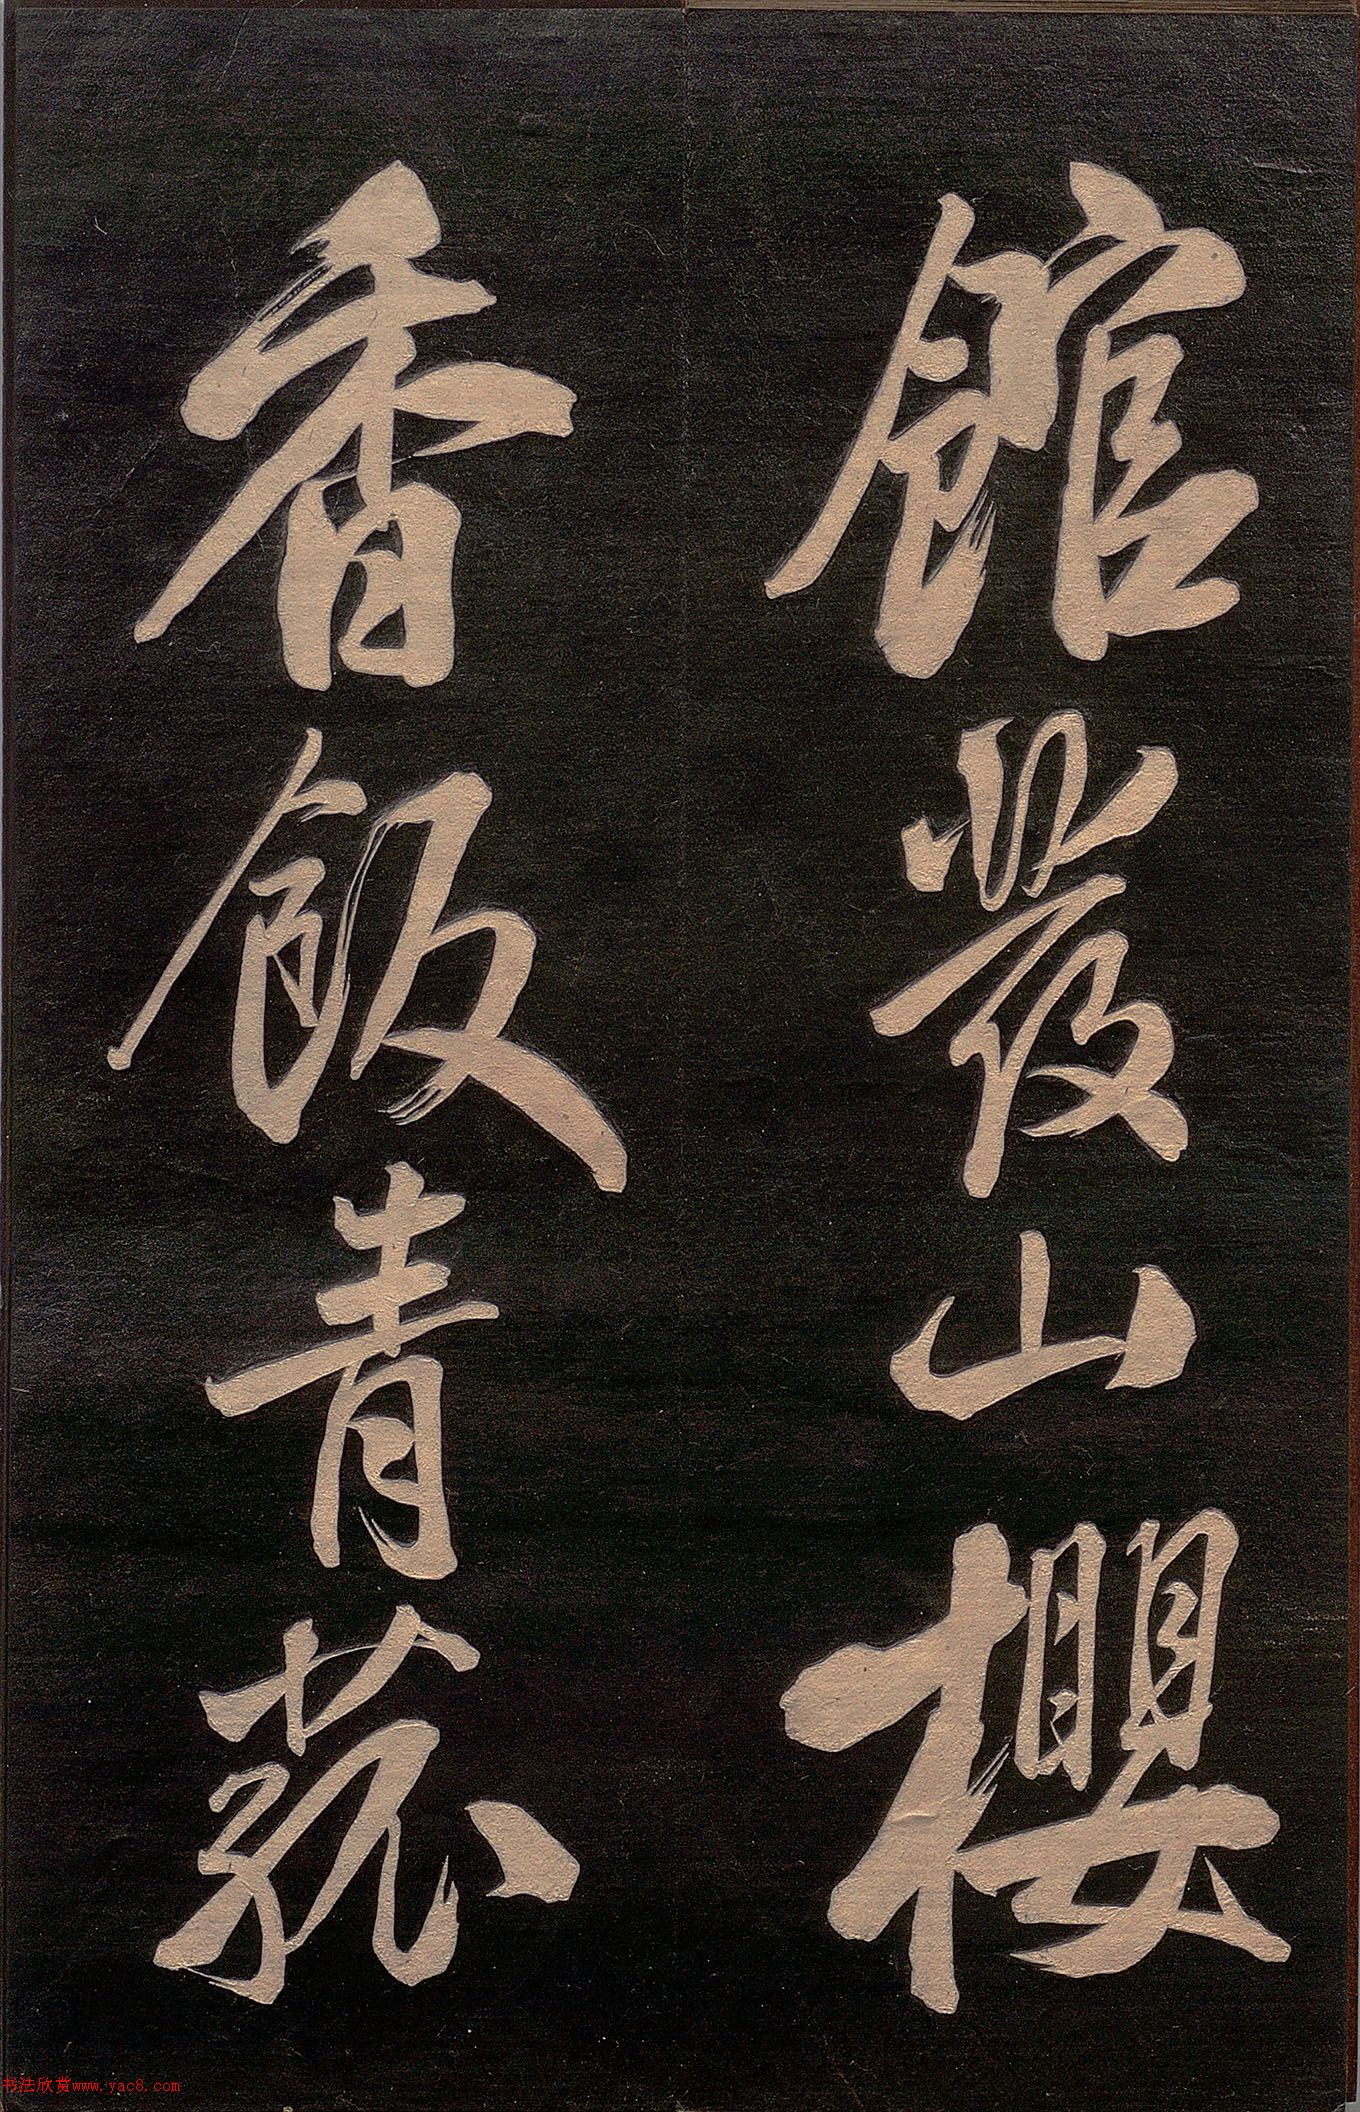 館發山櫻
香飯青菰
书法欣赏www.yac8.com